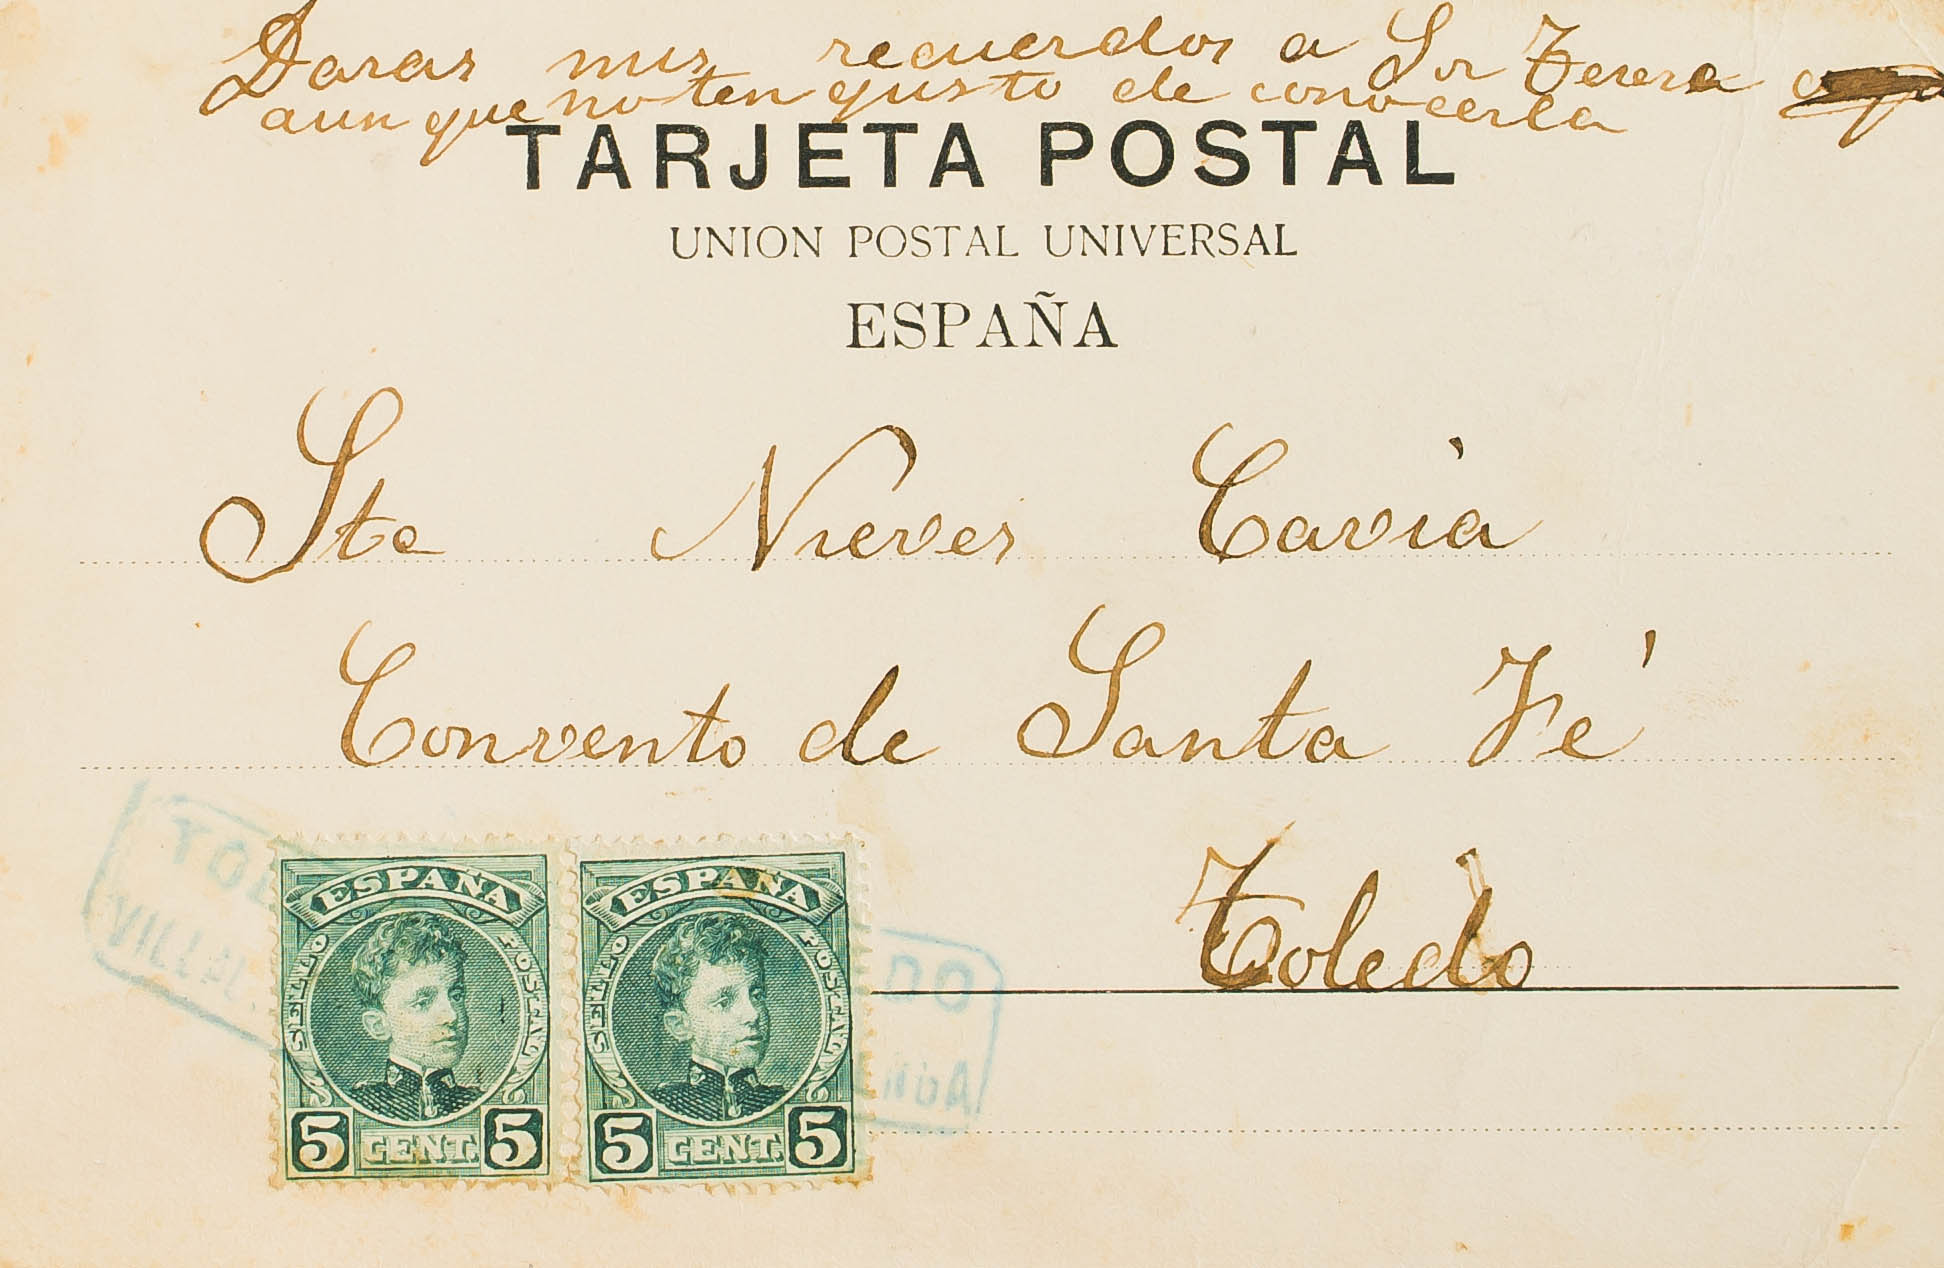 Daras mis recuerdos a Sor Teresa
aun que no ten gusto de conocerla
TARJETA POSTAL
UNION POSTAL UNIVERSAL
ESPAÑA
Sta Nieves Cavia
Convento de Santa Fé
Toledo
ESPAÑA ESPAÑA
SELLO POSTAL SELLO POSTAL
5 CENT. 5 5 CENT. 5